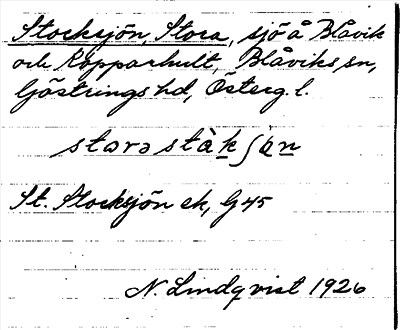 Stocksjön, Stora, sjö å Blåvik
och Kopparhult, Blåviks sn,
Göstrings hd, Österg. l.
storə stàkʃön
St. Stocksjön ek, G 45
N. Lindqvist 1926